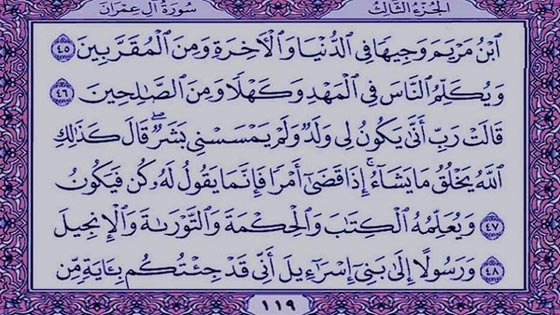 الجزء الثالث سورة آل عمران
ٱبْنُ مَرْيَمَ وَجِيهًا فِي ٱلدُّنْيَا وَٱلْآخِرَةِ وَمِنَ ٱلْمُقَرَّبِينَ ٤٥
وَيُكَلِّمُ ٱلنَّاسَ فِي ٱلْمَهْدِ وَكَهْلًا وَمِنَ ٱلصَّـٰلِحِينَ ٤٦
قَالَتْ رَبِّ أَنَّىٰ يَكُونُ لِي وَلَدٌ وَلَمْ يَمْسَسْنِي بَشَرٌ ۖ قَالَ كَذَٰلِكِ
ٱللَّهُ يَخْلُقُ مَا يَشَآءُ ۚ إِذَا قَضَىٰٓ أَمْرًا فَإِنَّمَا يَقُولُ لَهُۥ كُن فَيَكُونُ
٤٧ وَيُعَلِّمُهُ ٱلْكِتَـٰبَ وَٱلْحِكْمَةَ وَٱلتَّوْرَىٰةَ وَٱلْإِنجِيلَ
٤٨ وَرَسُولًا إِلَىٰ بَنِىٓ إِسْرَٰٓءِيلَ أَنِّى قَدْ جِئْتُكُم بِـَٔايَةٍ مِّن
١١٩